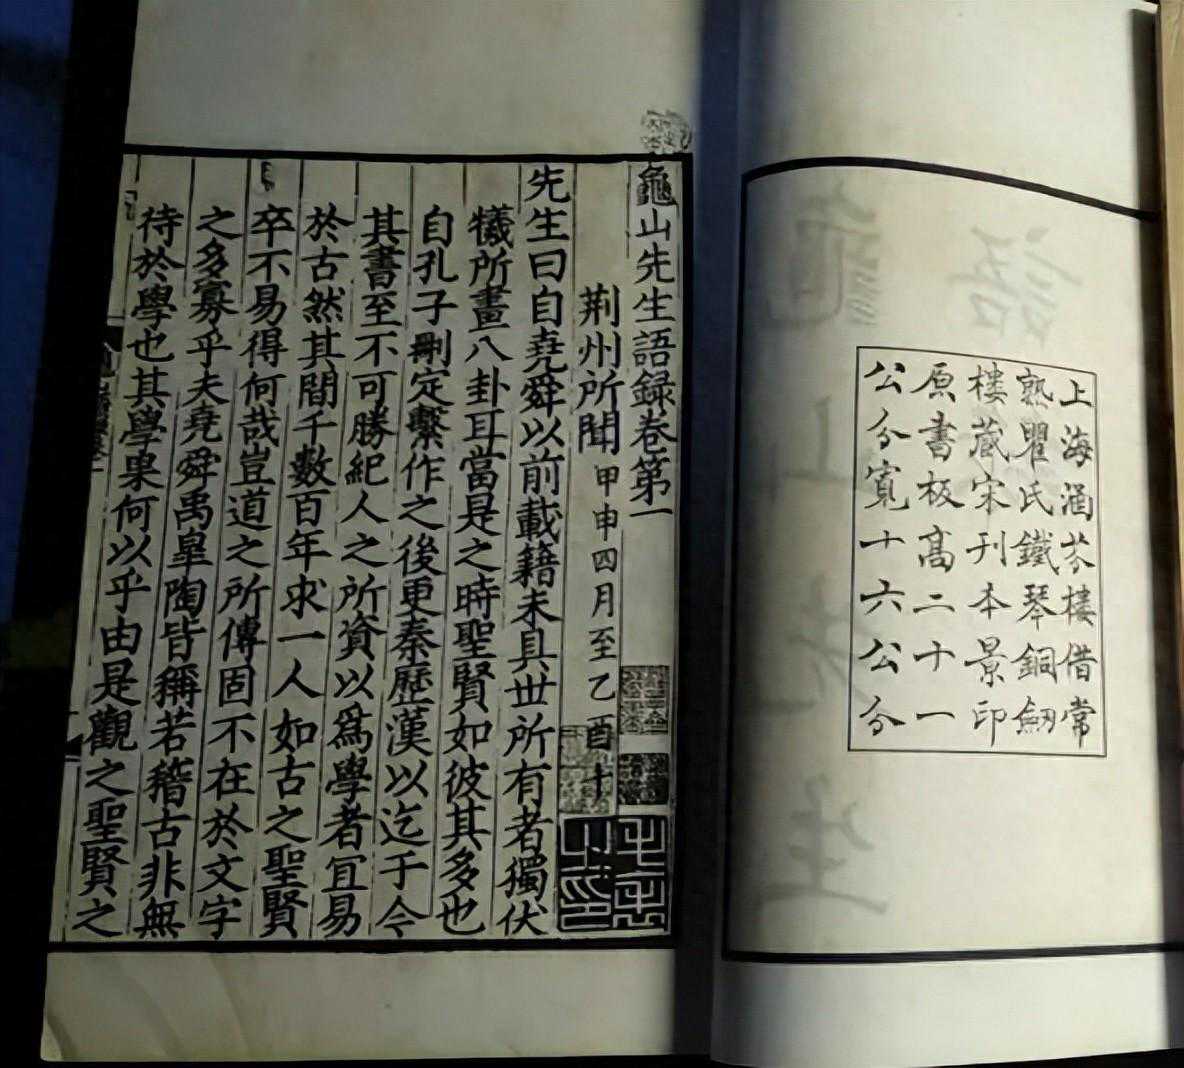 上海涵芬樓借常
熟瞿氏鐵琴銅劒
樓藏宋刊本景印
原書板高二十一
公分寬十六公分
龜山先生語録卷第一
荆州所聞甲申四月至乙酉十
先生曰自堯舜以前載籍未具世所有者獨伏
犧所畫八卦耳當是之時聖賢如彼其多也
自孔子刪定繫作之後更秦歷漢以迄于今
其書至不可勝紀人之所資以爲學者宜易
於古然其閒千數百年求一人如古之聖賢
卒不易得何哉豈道之所傳固不在於文字
之多寡乎夫堯舜禹皐陶皆稱若稽古非無
待於學也其學果何以乎由是觀之聖賢之